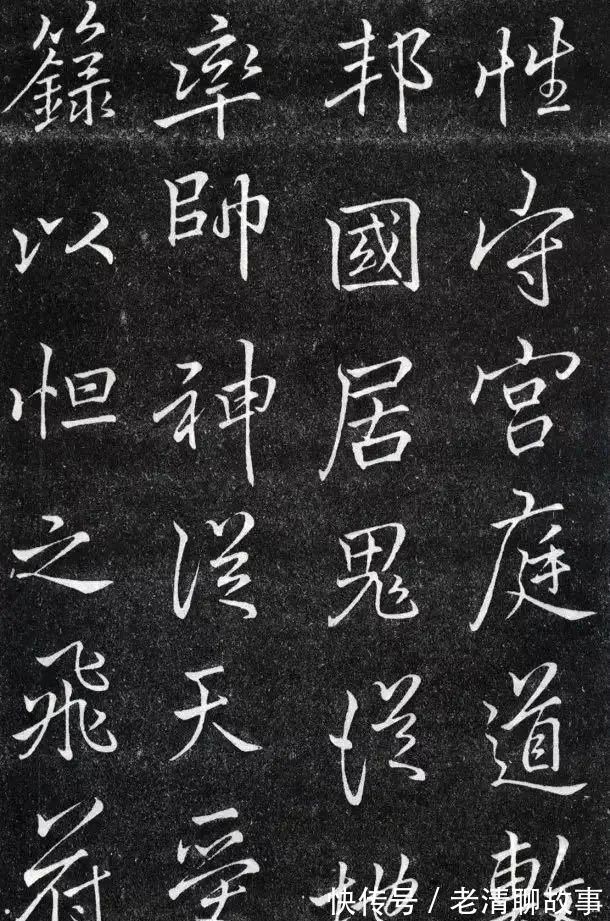 性守宮庭道
邦國居鬼從地
率帥神從天受
籙以怛之飛符
快传号 / 老清聊故事